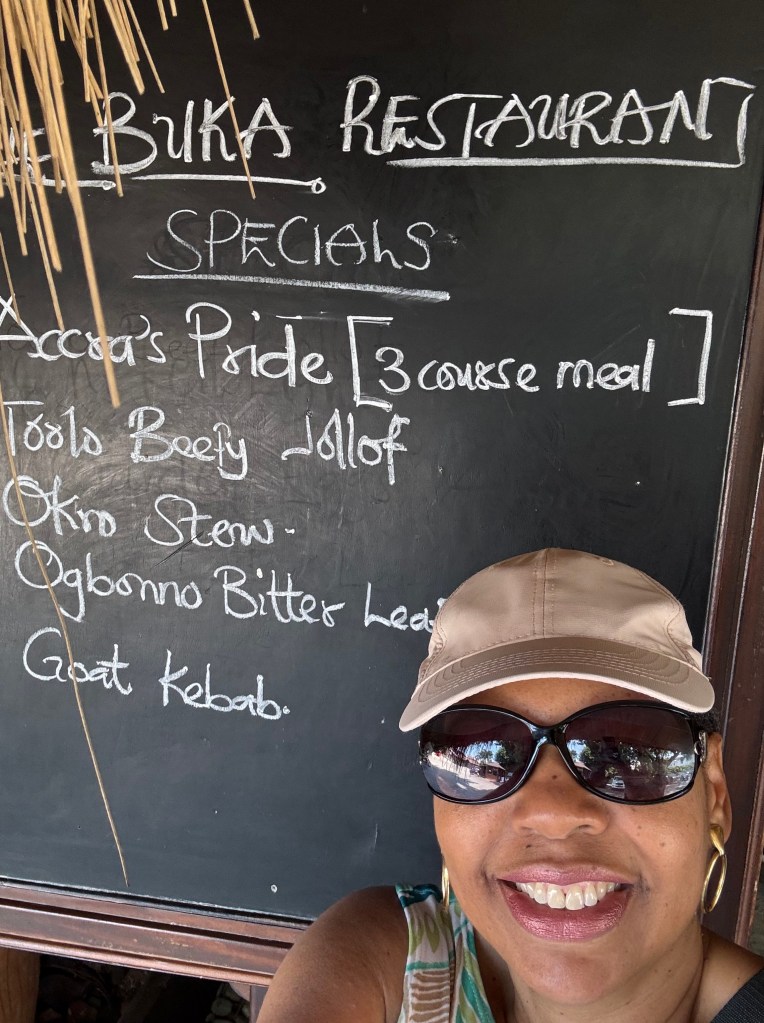 BUKA RESTAURANT
SPECIALS
Accra's Pride [3 course meal]
Beefy Jollof
Okro Stew.
Ogbonno Bitter
Goat Kebab.